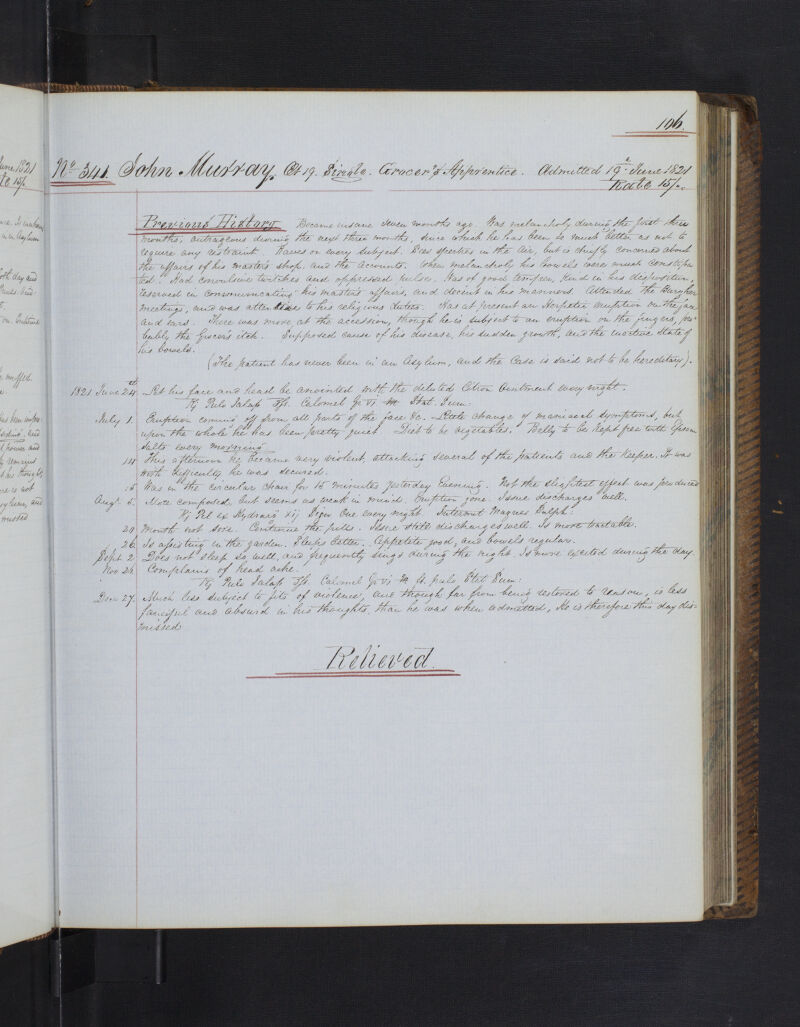 106.
No. 341. John Murray. Æt 19. Single. Grocer's Apprentice. Admitted 19th June 1821
Rate 15/-.
Previous History. Became insane seven months ago. Was melancholy during the first three
months; outrageous during the next three months, since which he has been so much better as not to
require any restraint. Raves on every subject. Sees spectres in the air, but is chiefly concerned about
the affairs of his master's shop, and the accounts. When melancholy his bowels were much constipa-
ted. Had convulsive twitches and oppressed pulse. Was of good temper, kind in his disposition,
reserved in communicating his master's affairs, and decent in his manners. Attended the Burgher
meetings, and was attentive to his religious duties. Has at present an Herpetic eruption on the face
and ears. There was more at the accession, though he is subject to an eruption on the fingers, pro-
bably the Grocers itch. Supposed cause of his disease, his sudden growth, and the inactive state of
his bowels.
(The patient has never been in an Asylum, and the case is said not to be hereditary).
1821 June 24th. Let his face and head be anointed with the diluted Citron Ointment every night.
Pulv Jalap ʒfs. Calomel Gr vi Stat. Sum.
July 1. Eruption coming off from all parts of the face &c. Little change of maniacal symptoms, but
upon the whole he has been pretty quiet. Diet to be vegetables. Belly to be kept free with Epsom
Salts every morning.
14. This afternoon he became very violent, attacking several of the patients and the Keeper. It was
with difficulty he was secured.
15. Was in the circular chair for 15 minutes yesterday Evening. Not the slightest effect was produced
Augt. 5. More composed, but seems as weak in mind. Eruption gone. Issue discharges well.
Pil ex Hydrarg xij Sign One every night. Intermit Magnes Sulph:
20. Mouth not sore. Continue the pills. Issue still discharges well. Is more tractable.
26. Is assisting in the garden. Sleeps better. Appetite good, and bowels regular.
Sept. 2. Does not sleep so well, and frequently sings during the night. Is more excited during the day
Nov. 26. Complains of head ache.
Pulv Jalap ʒfs. Calomel Gr vi M ft. pulv Stat Sum:
Dec. 27. Much less subject to fits of violence, and though far from being restored to reason, is less
fanciful and absurd in his thoughts, than he was when admitted. He is therefore this day dis-
missed
Relieved.